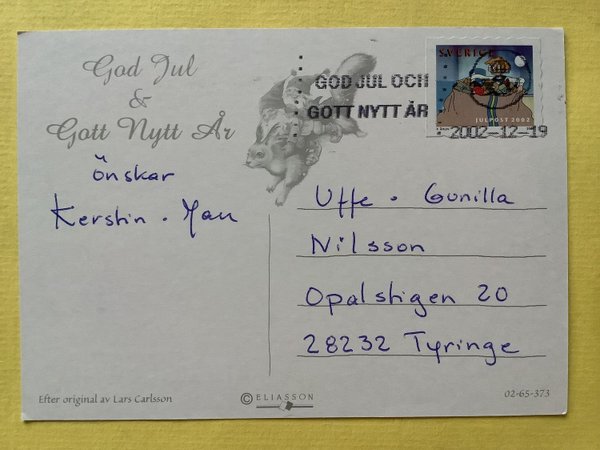 God Jul
&
Gott Nytt År
önskar
Kerstin . Man
GOD JUL OCH
GOTT NYTT ÅR
SVERIGE
JULPOST 2002
2002-12-19
Uffe . Gunilla
Nilsson
Opalstigen 20
28232 Tyringe
Efter original av Lars Carlsson
© ELIASSON
02-65-373